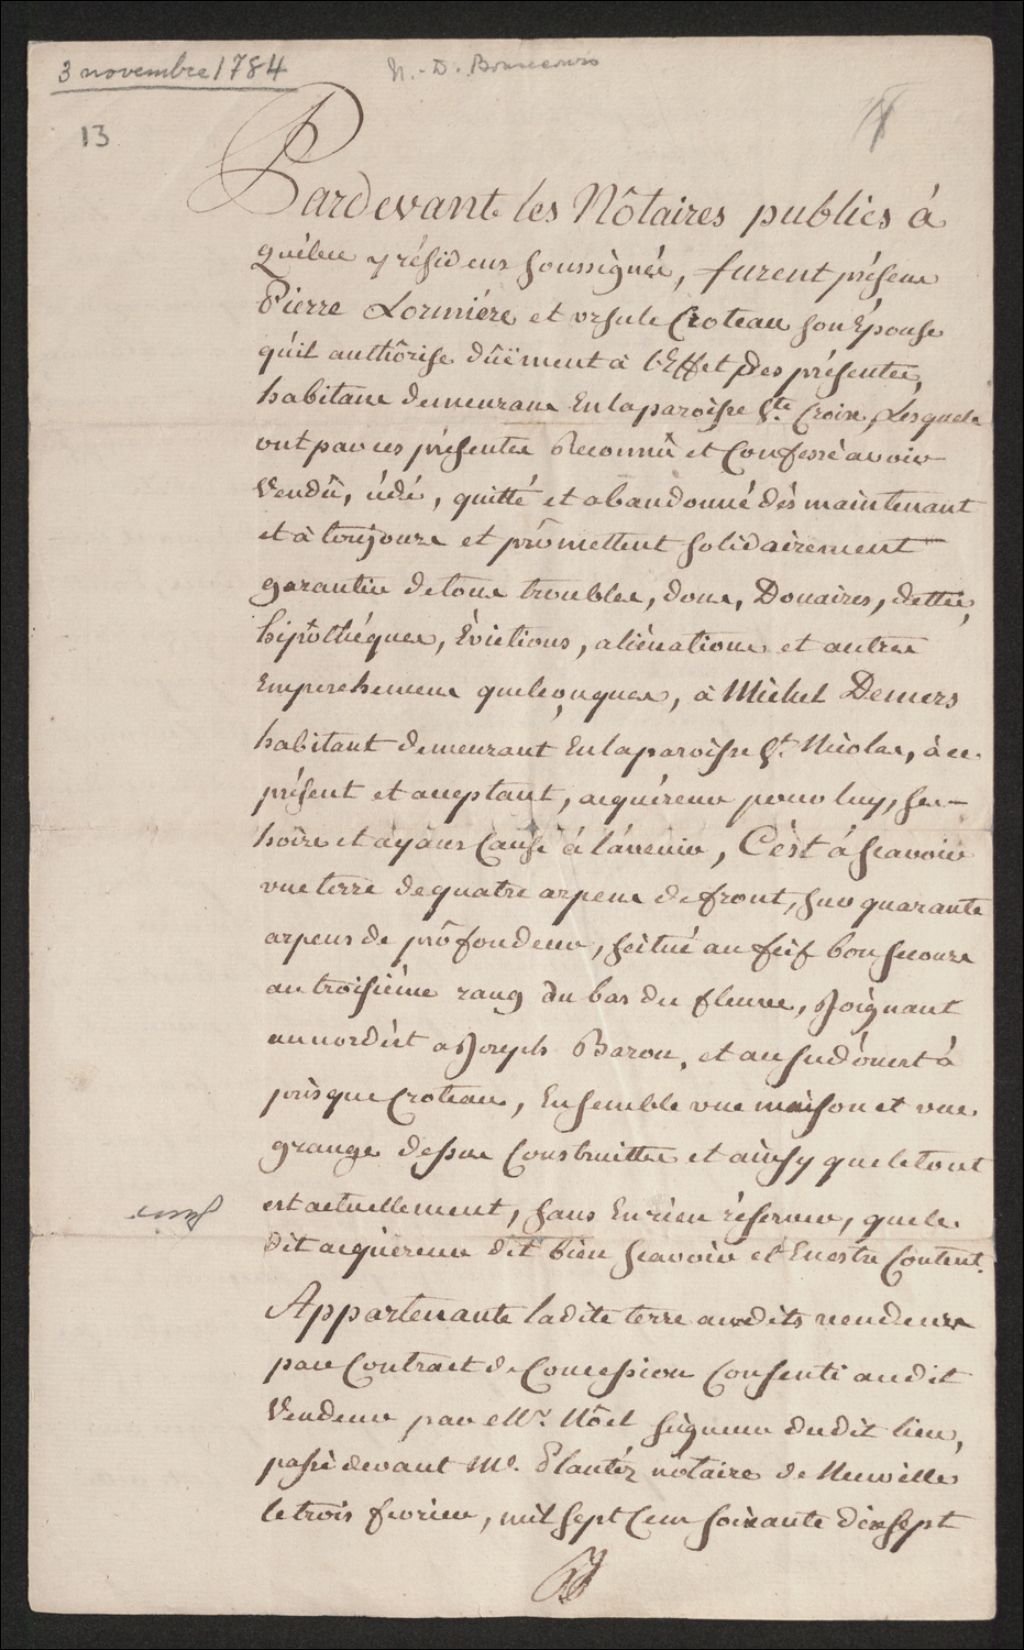 3 novembre 1784
N.-D. Bonsecours
13
Pardevant les Nôtaires publics à
québec y résidens soussignés, furent présens
Pierre Lormiére et ursule Croteau son Épouse
qu'il authôrise dûëment à l'Effet des présentes,
habitans demeurans En la paroisse Ste. Croix, Lesquels
ont par ces présentes Reconnû et Confessé avoir
Vendû, cédé, quitté et abandonné dès maintenant
et à toujours et prômettent solidairement
garantir de tous troubles, dons, Douaires, dettes,
hipothéques, Évictions, aliénations et autres
Empechemens quelconques, à Michel Demers
habitant demeurant En la paroisse St. Nicolas, à ce
présent et acceptant, acquéreur pour luy, ses
hoirs et ayans Cause à l'avenir, C'est à scavoir
une terre de quatre arpens de front, sur quarante
arpens de prôfondeur, scitué au feif bonsecours
au troisiéme rang du bas du fleuve, Joignant
au nordest a Joseph Baron, et au sud'ouest à
prisque Croteau, Ensemble une maison et une
grange dessus Construittes et ainsy que le tout
est actuellement, sans En rien réserver, que le
dit acquéreur dit bien scavoir et En estre Content.
Appartenante la dite terre auxdits vendeurs
par Contract de Concession Consenti au dit
Vendeur par Mr. Nôel seigneur du dit lieu,
passé devant Me. Planté notaire de Neuville
le trois fevrier, mil sept Cens soixante dix sept